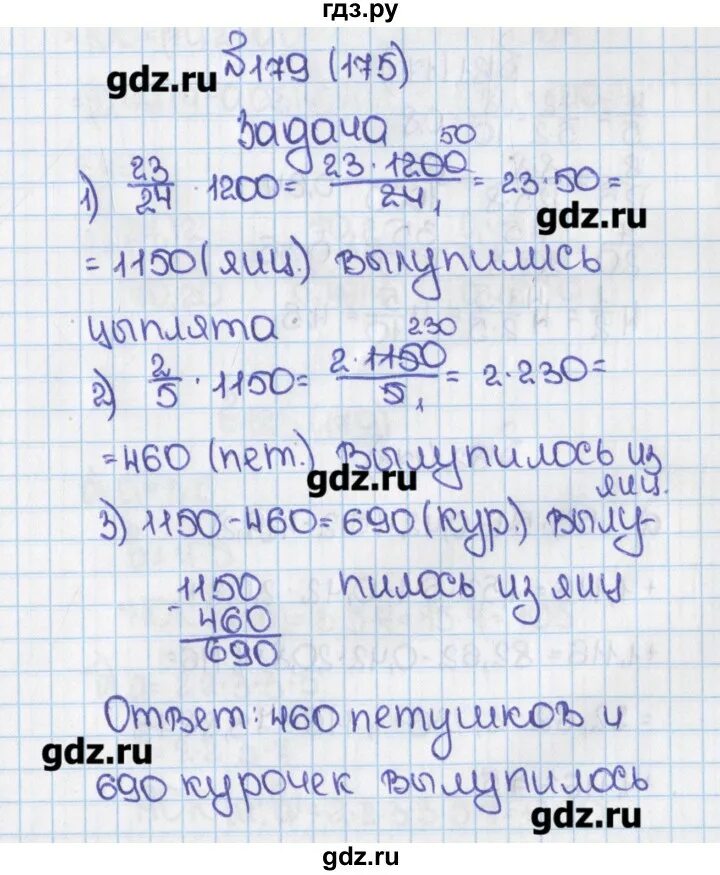 гдз.ру
№179 (175)
gdz.ru
Задача
1) 23/24 · 1200 = 23·1200/24 = 23·50 =
50
1
gdz.ru
= 1150 (яиц.) вылупились
цыплята
230
2) 2/5 · 1150 = 2·1150/5 = 2·230 =
1
= 460 (пет.) вылупилось из
яиц.
gdz.ru
3) 1150 - 460 = 690 (кур.) вылу-
пилось из яиц
1150
- 460
690
Ответ: 460 петушков и
gdz.ru
690 курочек вылупилось
gdz.ru
gdz.ru